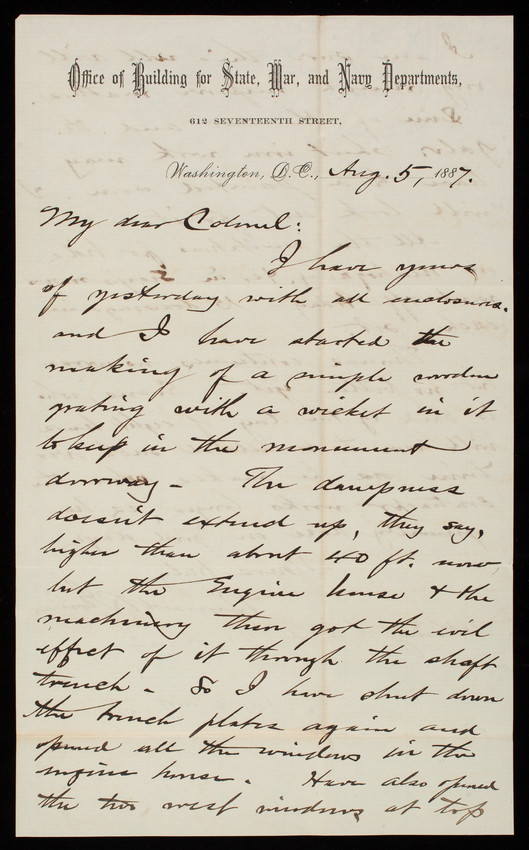 Office of Building for State, War, and Navy Departments,
612 SEVENTEENTH STREET,
Washington, D.C., Aug. 5, 1887.
My dear Colonel:
I have yours
of yesterday with all enclosures.
and I have started the
making of a simple wooden
grating with a wicket in it
to keep in the monument
doorway - The dampness
doesn't extend up, they say,
higher than about 40 ft. now
but the Engine house & the
machinery then got the evil
effect of it through the shaft
trench - So I have shut down
the trench plates again and
opened all the windows in the
engine house. Have also opened
the two west windows at top